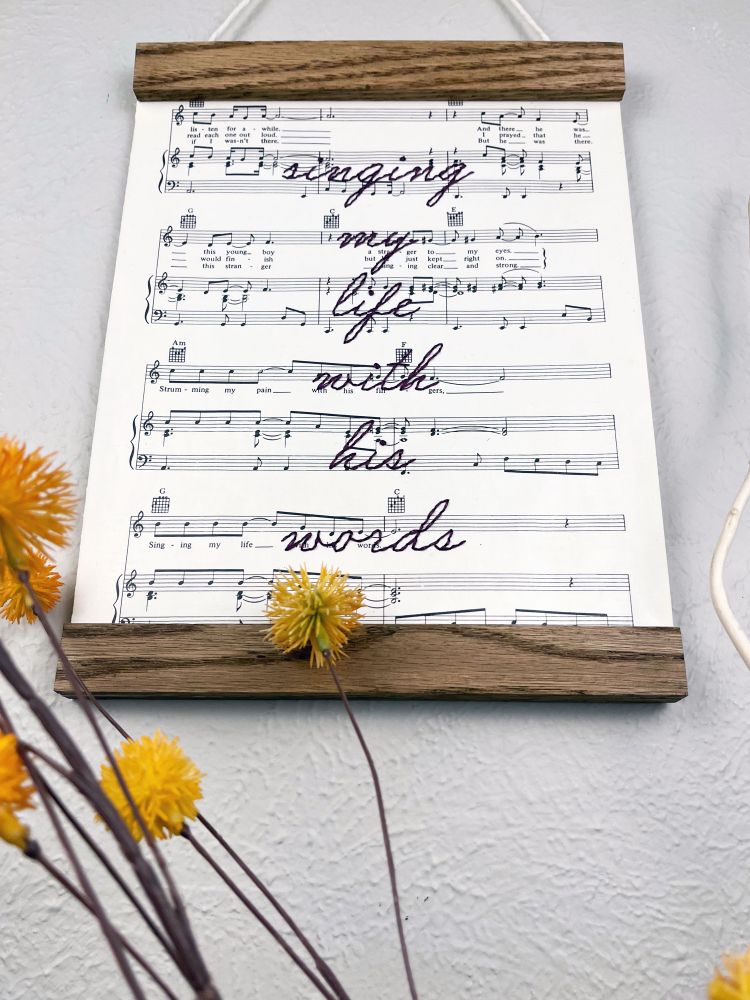 lis - ten for a - while. And there he was
read each one out loud. I prayed that he
if I was-n't there. But he was there.
singing
G C E
this young boy a stran - ger to my eyes,
would fin - ish but just kept right on,
this stran - ger sing - ing clear and strong.
my
life
Am F
Strum - ming my pain with his fin - gers,
with
his
G C
Sing - ing my life words
words